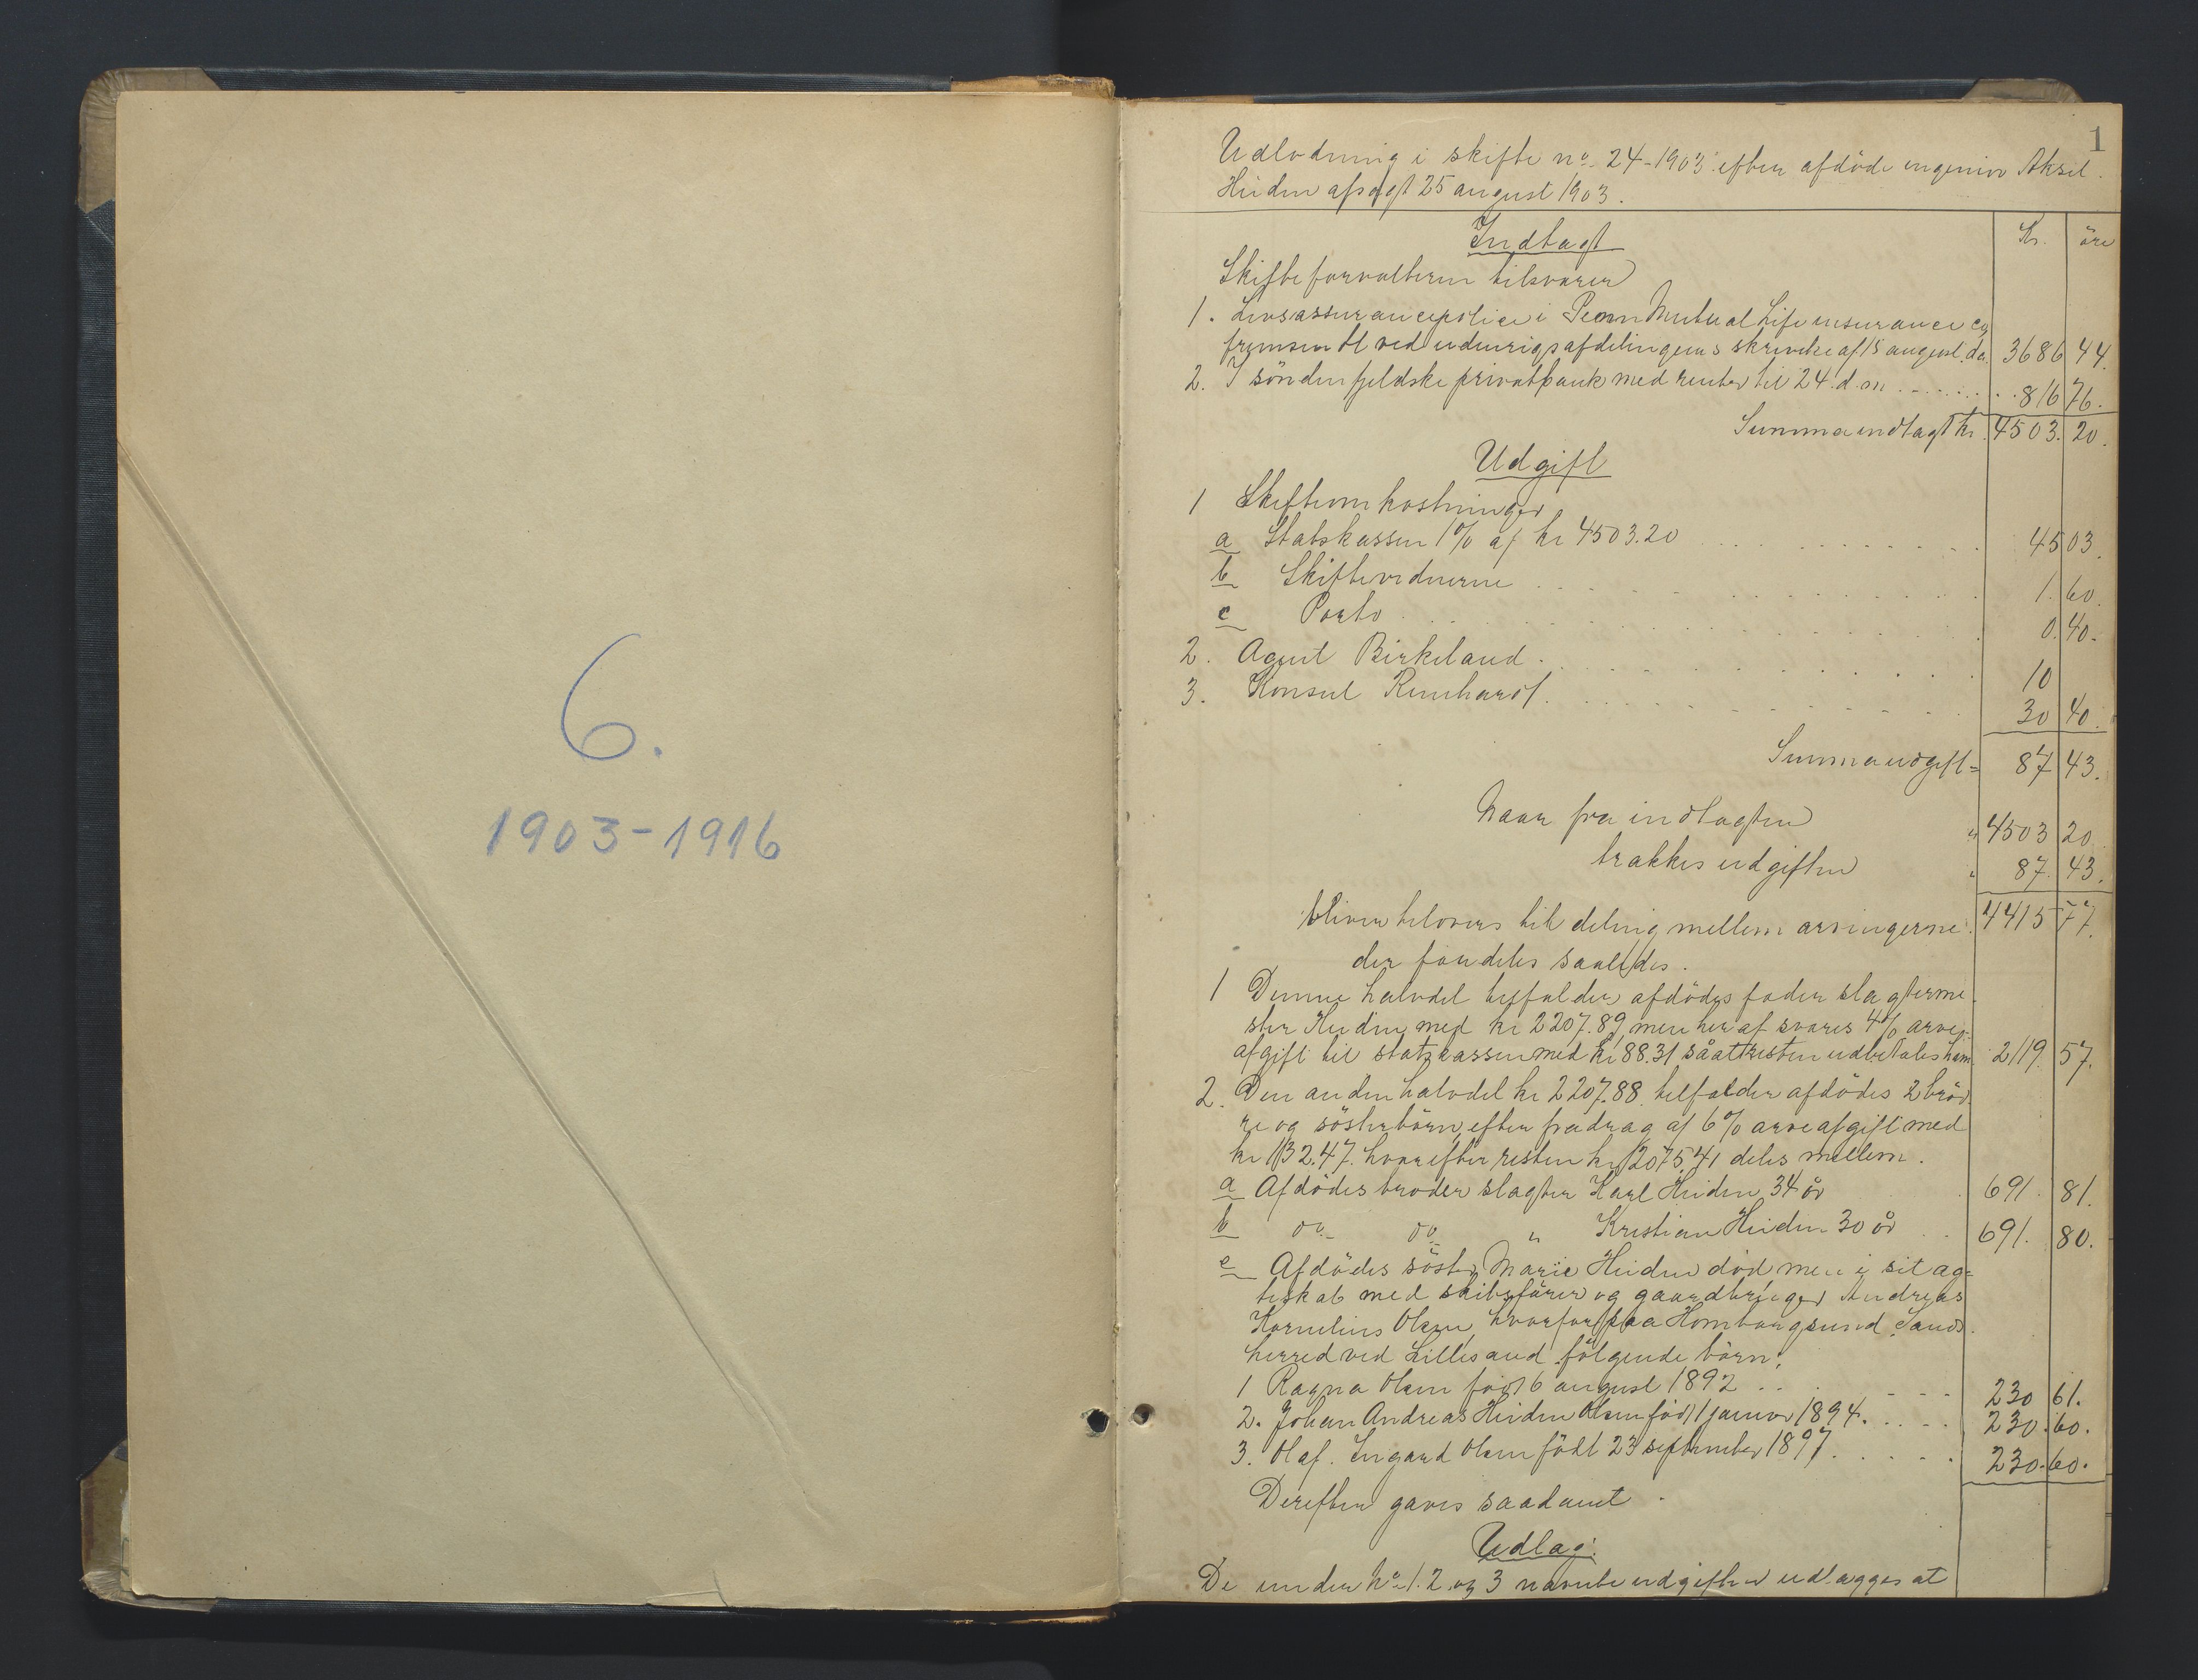 6.
1903-1916
1
Udlodning i skifte no 24-1903 efter afdöde ingeniør Aksel
Heiden afsagt 25 august 1903.
Indtagt
Kr. öre
Skifteforvalteren tilsvarer
1. Livsassurancepolice i Penn Mutual Life insurance co
fremsendt ved udenrigsafdelingens skrivelse af 15 august d.a. 3686 44.
2. I söndenfjeldske privatbank med renter til 24. d.m. 816 76.
Summa indtagt kr. 4503. 20.
Udgift
1 Skifteomkostninger
a Statskassen 1% af kr 4503.20 45 03.
b Skiftevidnerne 1. 60.
c Porto 0. 40.
2. Agent Birkeland 10
3. Konsul Reinhardt 30 40.
Summa udgift = 87 43.
Naar fra indtagten " 4503 20
trækkes udgiften " 87. 43.
bliver tilovers til deling mellem arvingerne. 4415 77.
der fordeles saaledes.
1 Denne halvdel tilfalder afdödes fader slagterme-
ster Heiden med kr 2207.89, men heraf svares 4% arve-
afgift til statskassen med kr 88.31 såat resten udbetales ham 2119. 57.
2. Den anden halvdel kr 2207.88 tilfalder afdödes 2 brød-
re og söster börn efter fradrag af 6% arveafgift med
kr 132.47. hvorefter resten kr 2075.41 deles mellem.
a Afdödes broder slagter Karl Heiden 34 år 691. 81.
b do do " Kristian Heiden 30 år 691. 80.
c Afdödes söster Marie Heiden död, men i sit æg-
teskab med skibsförer og gaardbruger Andreas
Kornelius Olsen, paa Homborgsund
herred ved Lillesand fölgende börn:
1 Ragna Olsen född 6 august 1892 230 61.
2. Johan Andreas Heiden Olsen föd 11 januar 1894. 230. 60.
3. Olaf. Ingard Olsen födt 23 september 1897. 230. 60.
Derefter gaves saadant
Udlag.
De under No 1. 2 og 3 nævnte udgifter udlægges at